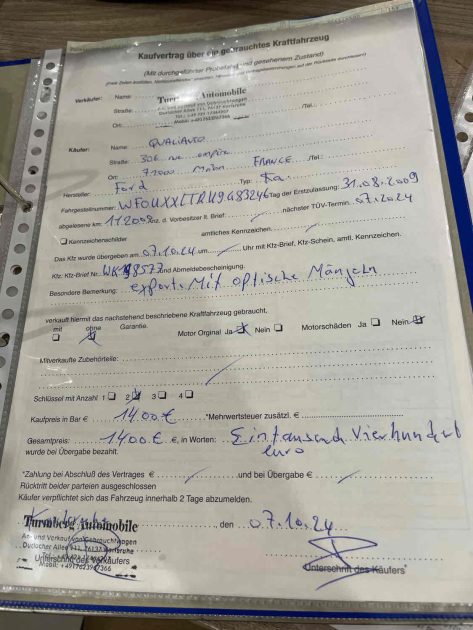 Kaufvertrag über ein gebrauchtes Kraftfahrzeug
(Mit durchgeführter Probefahrt und gesehenem Zustand)
Verkäufer: Name: Turmberg Automobile
Straße: An- und Verkauf von Gebrauchtwagen
Durlacher Allee 111, 76137 Karlsruhe
Ort: /Tel.:
Käufer: Name: QUALIAUTO
Straße: 306 rue
Ort: 71000 Macon FRANCE /Tel.:
Hersteller: Ford Typ: Ka
Fahrgestellnummer: Tag der Erstzulassung: 31.08.2009
abgelesene km: nz. d. Vorbesitzer lt. Brief: nächster TÜV-Termin: 07.2024
Kennzeichenschilder amtliches Kennzeichen:
Das Kfz wurde übergeben am 07.10.24 um Uhr mit Kfz-Brief, Kfz-Schein, amtl. Kennzeichen.
Kfz. Kfz-Brief Nr. und Abmeldebescheinigung.
Besondere Bemerkung: export. Mit optische Mängeln
verkauft hiermit das nachstehend beschriebene Kraftfahrzeug gebraucht,
mit ohne Garantie. Motor Orginal Ja Nein Motorschäden Ja Nein
Mitverkaufte Zubehörteile:
Schlüssel mit Anzahl 1 2 3 4
Kaufpreis in Bar € 1400 € *Mehrwertsteuer zusätzl. €
Gesamtpreis: 1400 € €, in Worten: Eintausend Vierhundert
wurde bei Übergabe bezahlt. euro
*Zahlung bei Abschluß des Vertrages € und bei Übergabe €
Rücktritt beider parteien ausgeschlossen
Käufer verpflichtet sich das Fahrzeug innerhalb 2 Tage abzumelden.
Turmberg Automobile , den 07.10.24
An- und Verkauf von Gebrauchtwagen
Durlacher Allee 111, 76137 Karlsruhe
Unterschrift des Verkäufers Unterschrift des Käufers